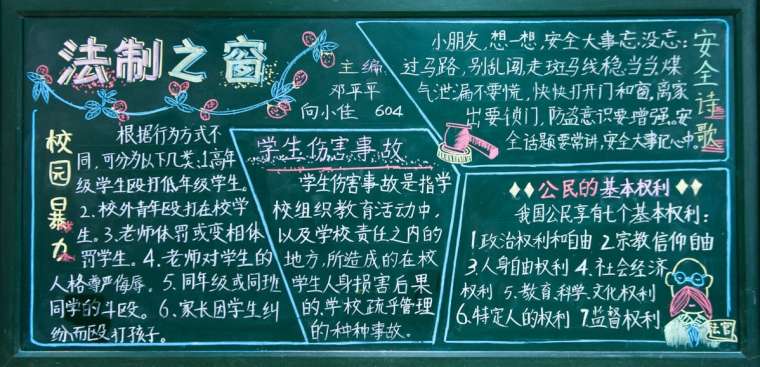 法制之窗
主编
邓平平
向小佳 604
校园暴力
根据行为方式不
同,可分为以下几类:1.高年
级学生殴打低年级学生。
2.校外青年殴打在校学
生。3.老师体罚或变相体
罚学生。4.老师对学生的
人格尊严侮辱。5.同年级或同班
同学的斗殴。6.家长因学生纠
纷而殴打孩子。
学生伤害事故
学生伤害事故是指学
校组织教育活动中,
以及学校责任之内的
地方,所造成的在校
学生人身损害后果
的,学校疏乎管理
的种种事故。
安全诗歌
小朋友,想一想,安全大事忘没忘:
过马路,别乱闯,走斑马线稳当当,煤
气泄漏不要慌,快快打开门和窗,离家
出要锁门,防盗意识要增强。安
全话题要常讲,安全大事记心中。
公民的基本权利
我国公民享有七个基本权利:
1.政治权利和自由 2.宗教信仰自由
3.人身自由权利 4.社会经济
权利 5.教育,科学,文化权利
6.特定人的权利 7.监督权利
法官